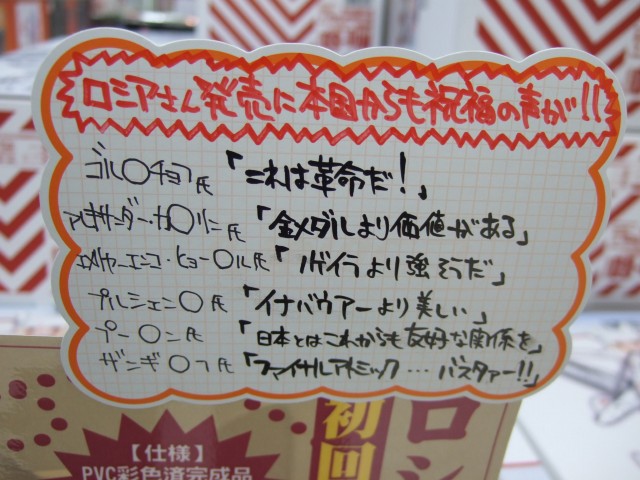 ロシアさん発売に本国からも祝福の声が!!
ゴル〇チョフ氏「これは革命だ!」
アレキサンダー・カ〇リン氏「金メダルより価値がある」
エメリヤーエンコ・ヒョー〇ル氏「ノゲイラより強そうだ」
プルシェン〇氏「イナバウアーより美しい」
プー〇ン氏「日本とはこれからも友好な関係を」
ザンギ〇フ氏「ファイナルアトミック…バスタァー!!」
【仕様】
PVC彩色済完成品
初回
ロシ